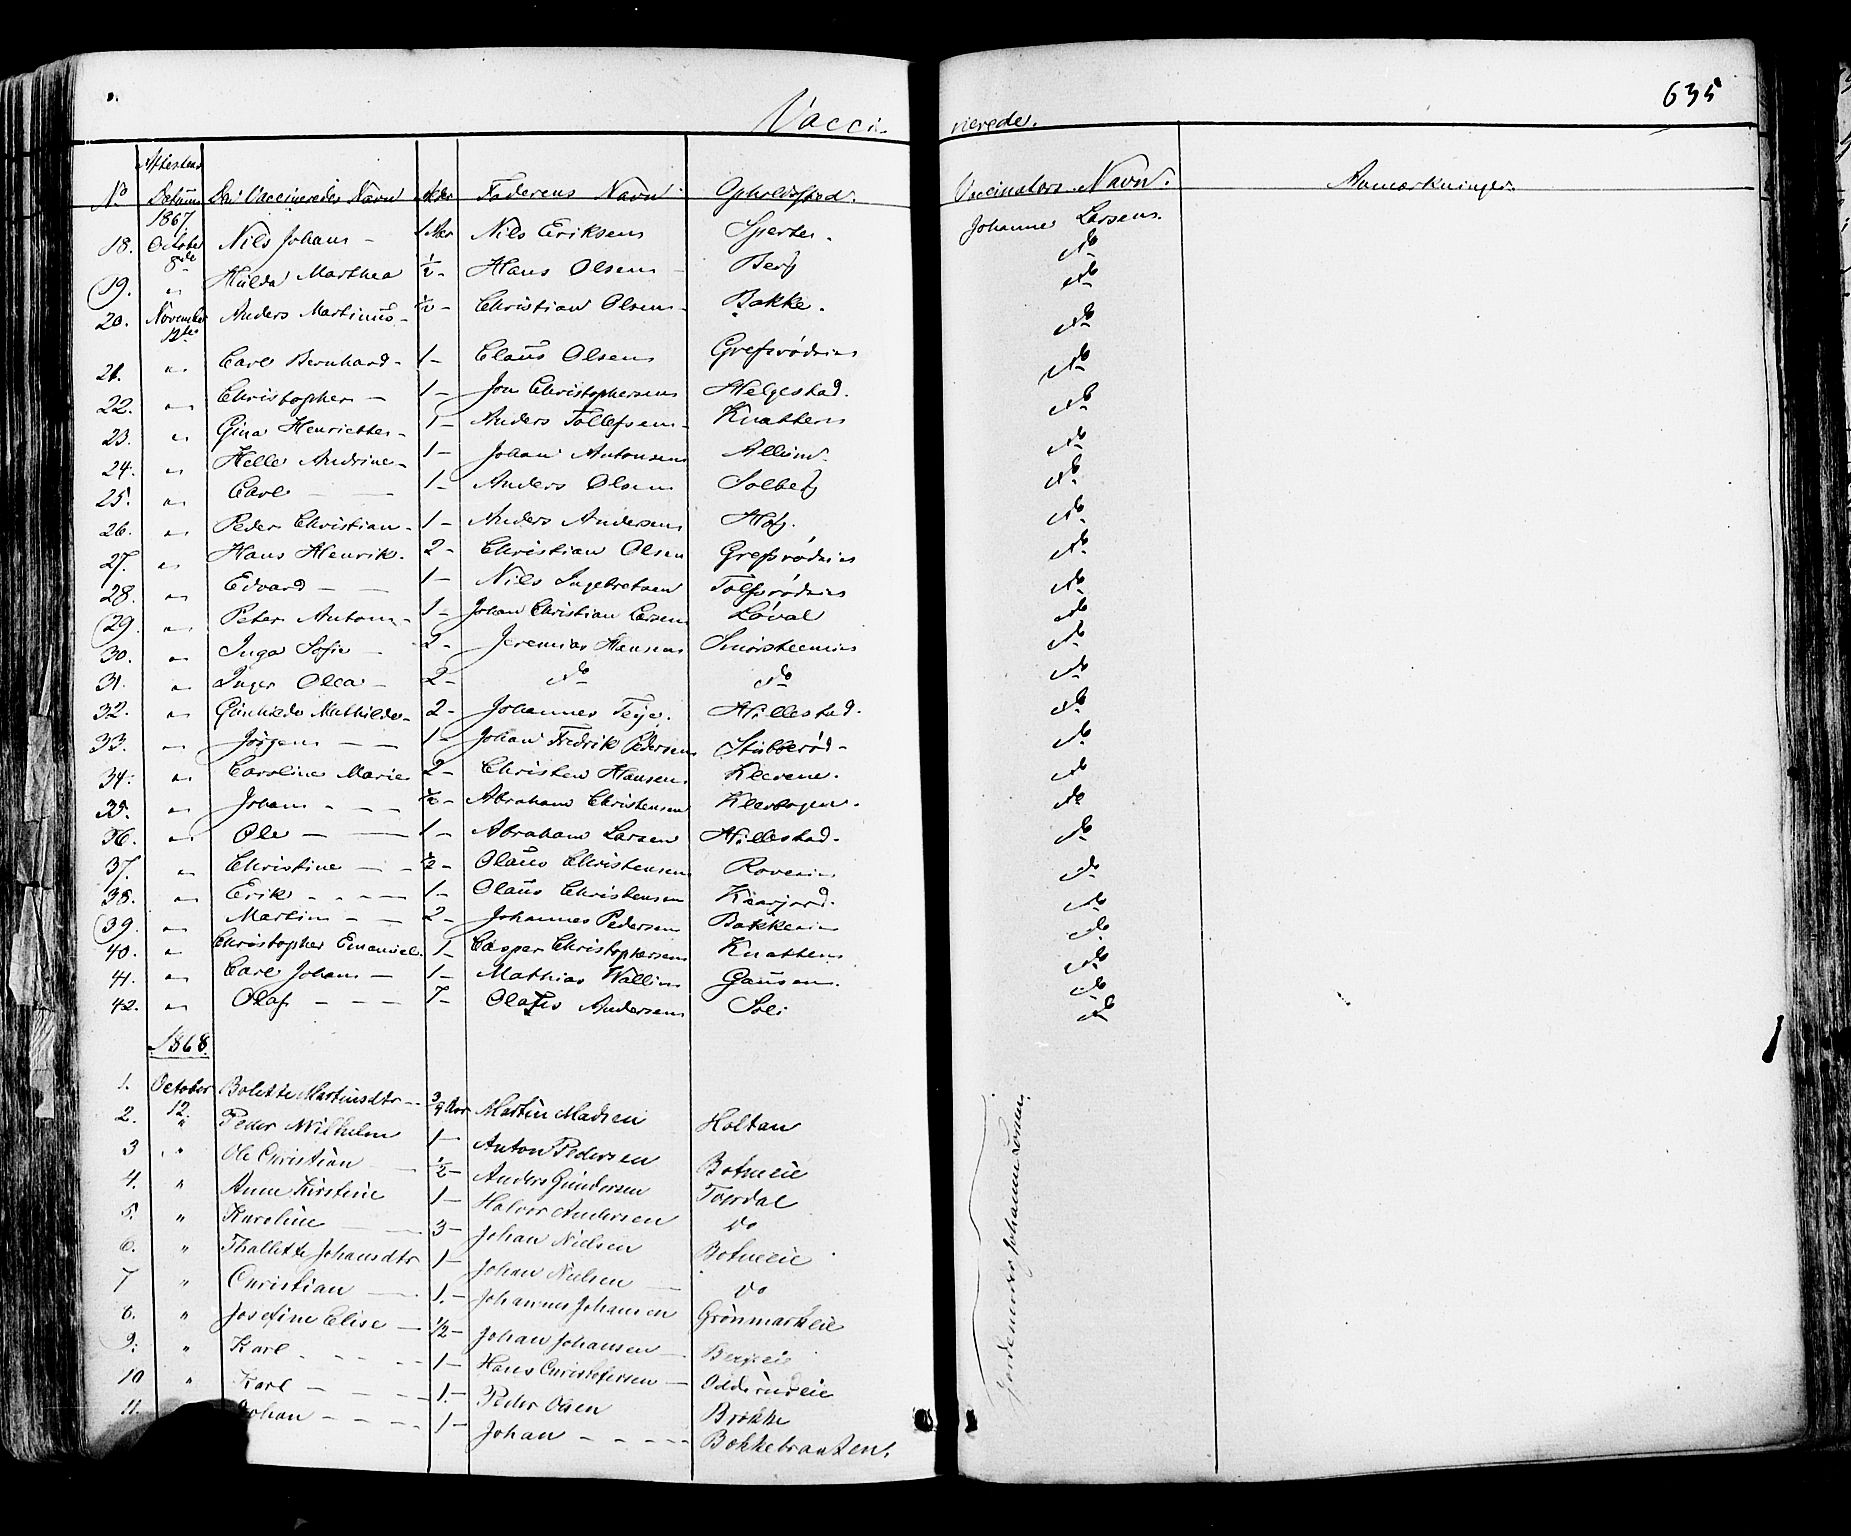 635
Vacci- nerede.
No Attestens Datum Den Vaccineredes Navn Alder Faderens Navn Opholdssted. Vaccinators Navn. Anmærkninger.
1867
18. October 8de Nils Johan - 1 Aar Nils Eriksen Johanne Larsen.
19. " Hulda Marthea ½ - Hans Olsen - Berg do
20. November 12te Anders Martinus - ½ - Christian Olsen - Bakke. do
21. " Carl Bernhard - 1 - Claus Olsen do
22. " Christopher - 1 - Jon Christophersen Helgestad. do
23. " Gina Henriette - 1 - Anders Tollefsen - Knatten do
24. " Helle Andrine - 1 - Johan Antonsen do
25. " Carl - - 1 - Anders Olsen Solberg do
26. " Peder Christian - 1 - Anders Andersen Hof. do
27. " Hans Henrik. 2 - Christian Olsen do
28. " Edvard - - 1 - Nils Ingebretsen do
29. " Peter Anton - 1 - Johan Christian Larsen Løval do
30. " Inga Sofie - 2 - Jeremias Hansen do
31. " Inger Olea - 2 - do do do
32. " Gunhilde Mathilde - 2 - Johannes Teje. Hillestad. do
33. " Jørgen - - 1 - Johan Fredrik Pedersen Stubberød - do
34. " Caroline Marie 2 - Christen Hansen Klevene. do
35. " Johan - - - ½ - Abraham Christensen do
36. " Ole - - 1 - Abraham Larsen Hillestad. do
37. " Christine - - ½ - Olaus Christensen do
38. " Erik - - - - 1 - Olaus Christensen do
39. " Martin - - 2 - Johannes Pedersen do
40. " Christopher Emanuel 1 - Casper Christophersen Knatten do
41. " Carl Johan - 1 - Mathias Wallin Gausen. do
42. " Olaf - - - 7 - Andersen Soli do
1868.
1. October 12. Bolette Martinsdtr - 3/4 Aar Martin Madsen Holtan
2. " Peder Wilhelm 1 - Anton Pedersen Botneeie
3 " Ole Christian - ½ - Anders Gundersen Topdal
4. " Anne Kirstine 1 - Halvor Andersen do
5. " Karoline - - 3 - Johan Nielsen Botneeie
6. " Thallette Johansdtr 1 - Johan Nielsen - do
7 " Christian - - 1. - Johannes Johansen Grønmarkeie
8. " Josefine Elise - 1/2 - Johan Johansen - Bergeie
9. " Karl - - - - 1 - Hans Christofersen - Oddesundeie
10 " Karl - - - - 1. - Peder Olsen Brekke
11. Johan - - - - 1 - Johan - - - - Bakkebraaten.
Jordemoder Johanne Larsen.